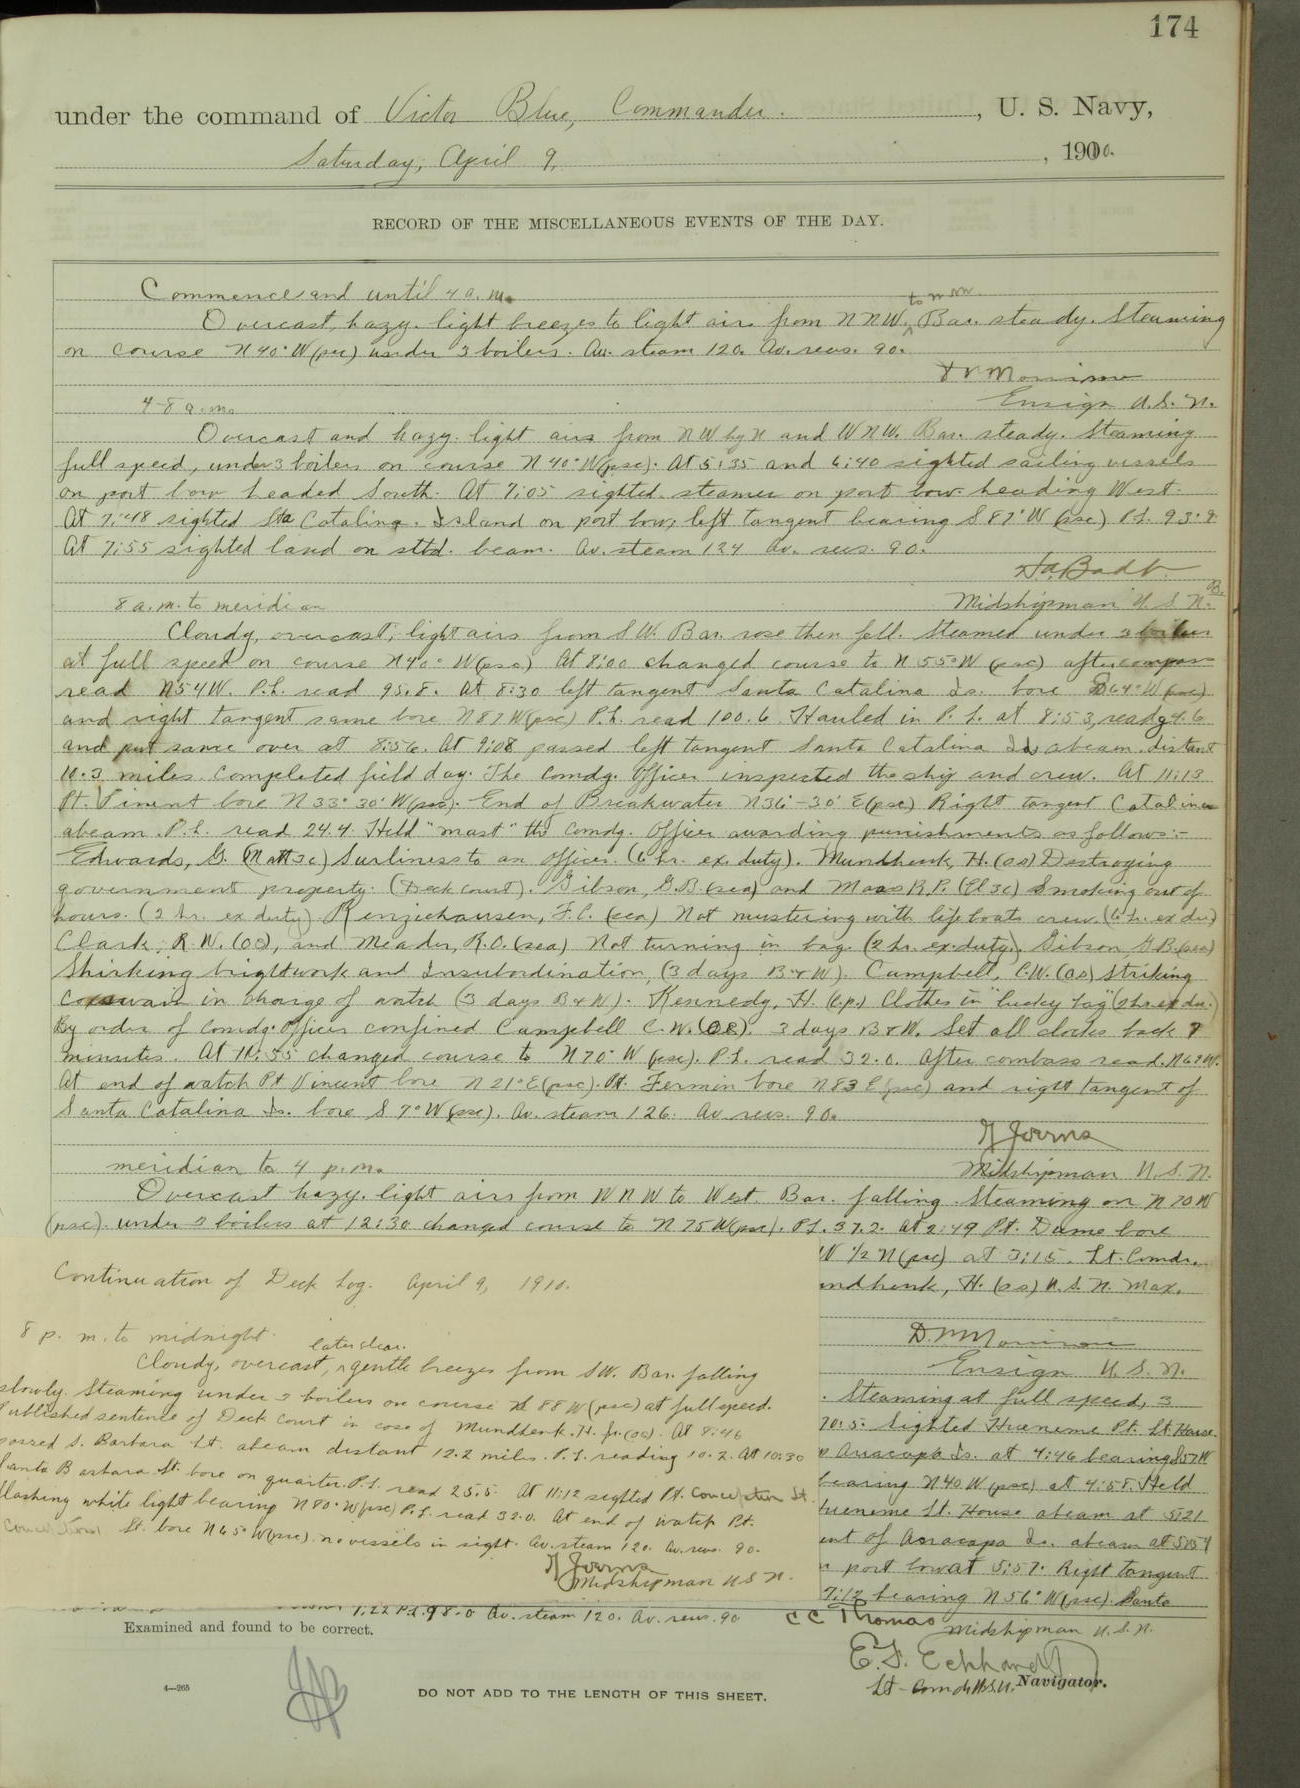 174
under the command of Victor Blue, Commander. , U. S. Navy,
Saturday, April 9, , 1910.
RECORD OF THE MISCELLANEOUS EVENTS OF THE DAY.
Commence and until 4 a. m.
to WNW.
Overcast, hazy. light breezes to light airs from NNW, Bar. steady. Steaming
on course N 40° W (psc) under 3 boilers. Av. steam 120. Av. revs. 90.
Ensign U.S.N.
4-8 a.m.
Overcast and hazy. light airs from NW by N and WNW. Bar. steady. Steaming
full speed, under 3 boilers on course N 40° W (psc). At 5:35 and 6:40 sighted sailing vessels
on port bow headed South. At 7:05 sighted steamer on port bow heading West.
At 7:48 sighted Sta Catalina Island on port bow, left tangent bearing S 87° W (psc) P.L. 93.9
At 7:55 sighted land on stbd. beam. Av. steam 124 Av. revs. 90.
Midshipman U.S.N.
8 a.m. to meridian
Cloudy, overcast, light airs from SW. Bar. rose then fell. Steamed under 3 boilers
at full speed on course N 40° W (psc) At 8:00 changed course to N 55° W (psc) after compass
read N 54 W. P.L. read 95.8. At 8:30 left tangent Santa Catalina Is. bore S 64° W (psc)
and right tangent same bore N 87 W (psc) P.L. read 100.6 Hauled in P.L. at 8:53, read 4.6
and put same over at 8:56. At 9:08 passed left tangent Santa Catalina Is abeam distant
10.3 miles. Completed field day. The Comdg. Officer inspected the ship and crew. At 11:13
Pt. Vincent bore N 33° 30' W (psc). End of Breakwater N 36°-30' E (psc) Right tangent Catalina
abeam. P.L. read 24.4. Held "mast" the Comdg. Officer awarding punishments as follows:-
Edwards, G. (Matt 3c) Surliness to an officer. (6 hr. ex. duty). Mundhenk, H. (os) Destroying
government property. (Deck court). Gibson, G.B. (sea) and Moss R.P. (El 3c) Smoking out of
hours. (2 hr. ex duty) Renziehausen, F.C. (sea) Not mustering with lifeboats crew. (6 hr. ex du)
Clark, R.W. (OS), and Meader, R.O. (sea) Not turning in bag. (2 hr. ex. duty). Gibson G.B. (sea)
Shirking brightwork and Insubordination, (3 days B & W). Campbell, C.W. (OS) Striking
coxswain in charge of watch (3 days B & W). Kennedy, H. (c.p.) Clothes in "lucky bag" (2 hr ex du.)
By order of Comdg. Officer confined Campbell C.W. (OS). 3 days B & W. Set all clocks back 7
minutes. At 11:55 changed course to N 70° W (psc). P.L. read 32.0. After compass read N 69 W.
At end of watch Pt Vincent bore N 21° E (psc). Pt. Fermin bore N 83 E (psc) and right tangent of
Santa Catalina Is. bore S 7° W (psc). Av. steam 126. Av revs. 90.
Midshipman U.S.N.
meridian to 4 p.m.
Overcast hazy. light airs from WNW to West. Bar. falling. Steaming on N 70 W
(psc). under 3 boilers at 12:30 changed course to N 75 W (psc). P.L. 37.2. At 2:49 Pt. Dume bore
W 1/2 N (psc) at 3:15. Lt. Comdr.
ndhenk, H. (os) U.S.N. Max.
Ensign U.S.N.
. Steaming at full speed, 3
70.5. Sighted Hueneme Pt. Lt. House.
Anacapa Is. at 4:46 bearing S 57 W
bearing N 40 W (psc) at 4:58. Held
Hueneme Lt. House abeam at 5:21
ent of Anacapa Is. abeam at 5:54
port bow at 5:57. Right tangent
7:12 bearing N 56° W (psc). Santa
Continuation of Deck Log. April 9, 1910.
8 p. m. to midnight.
later clear.
Cloudy, overcast, gentle breezes from SW. Bar. falling
slowly. Steaming under 3 boilers on course N 88 W (psc) at full speed.
Published sentence of Deck Court in case of Mundhenk, H. Jr. (os). At 8:46
passed S. Barbara Lt. abeam distant 12.2 miles. P.L. reading 10.2. At 10:30
Santa Barbara Lt. bore on quarter. P.L. read 25.5. At 11:12 sighted Pt. Conception Lt.
flashing white light bearing N 80° W (psc) P.L. read 32.0. At end of watch Pt.
Conception Lt. bore N 65° W (psc). no vessels in sight. Av. steam 120. Av. revs. 90.
Midshipman U.S.N.
7:22 P.L. 98.0 Av. steam 120. Av. revs. 90
C C Thomas
Midshipman U.S.N.
Examined and found to be correct.
E.F. Eckhardt
Lt-Comdr U.S.N. Navigator.
4—265
DO NOT ADD TO THE LENGTH OF THIS SHEET.